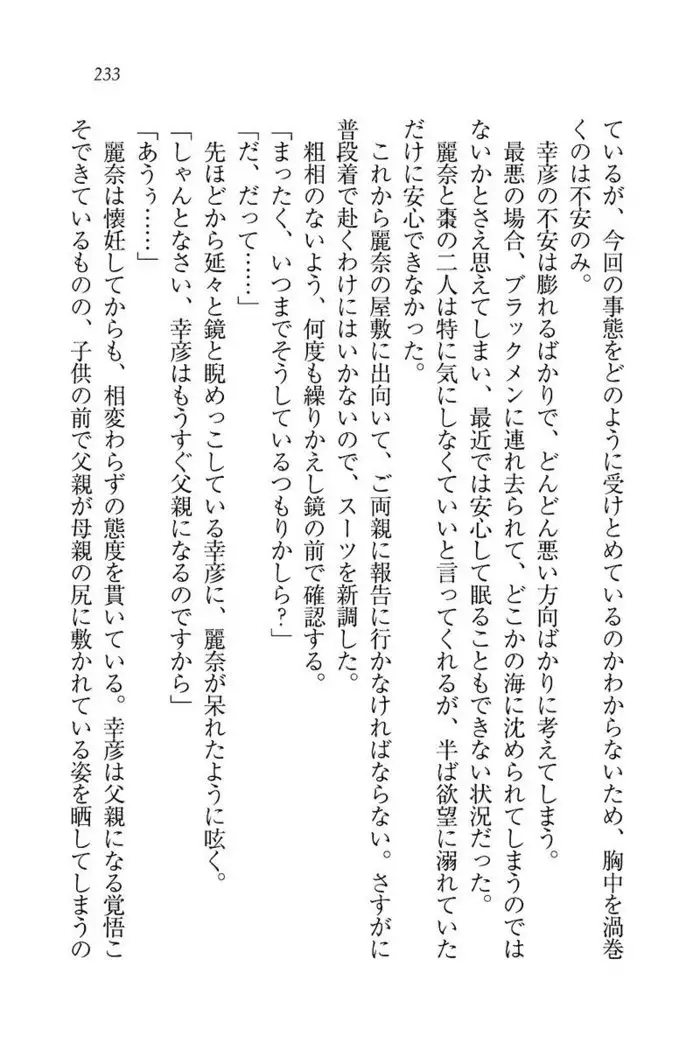 233
ているが、今回の事態をどのように受けとめているのかわからないため、胸中を渦巻
くのは不安のみ。
幸彦の不安は膨れるばかりで、どんどん悪い方向ばかりに考えてしまう。
最悪の場合、ブラックメンに連れ去られて、どこかの海に沈められてしまうのでは
ないかとさえ思えてしまい、最近では安心して眠ることもできない状況だった。
麗奈と棗の二人は特に気にしなくていいと言ってくれるが、半ば欲望に溺れていた
だけに安心できなかった。
これから麗奈の屋敷に出向いて、ご両親に報告に行かなければならない。さすがに
普段着で赴くわけにはいかないので、スーツを新調した。
粗相のないよう、何度も繰りかえし鏡の前で確認する。
「まったく、いつまでそうしているつもりかしら?」
「だ、だって……」
先ほどから延々と鏡と睨めっこしている幸彦に、麗奈が呆れたように呟く。
「しゃんとなさい、幸彦はもうすぐ父親になるのですから」
「あうぅ……」
麗奈は懐妊してからも、相変わらずの態度を貫いている。幸彦は父親になる覚悟こ
そできているものの、子供の前で父親が母親の尻に敷かれている姿を晒してしまうの